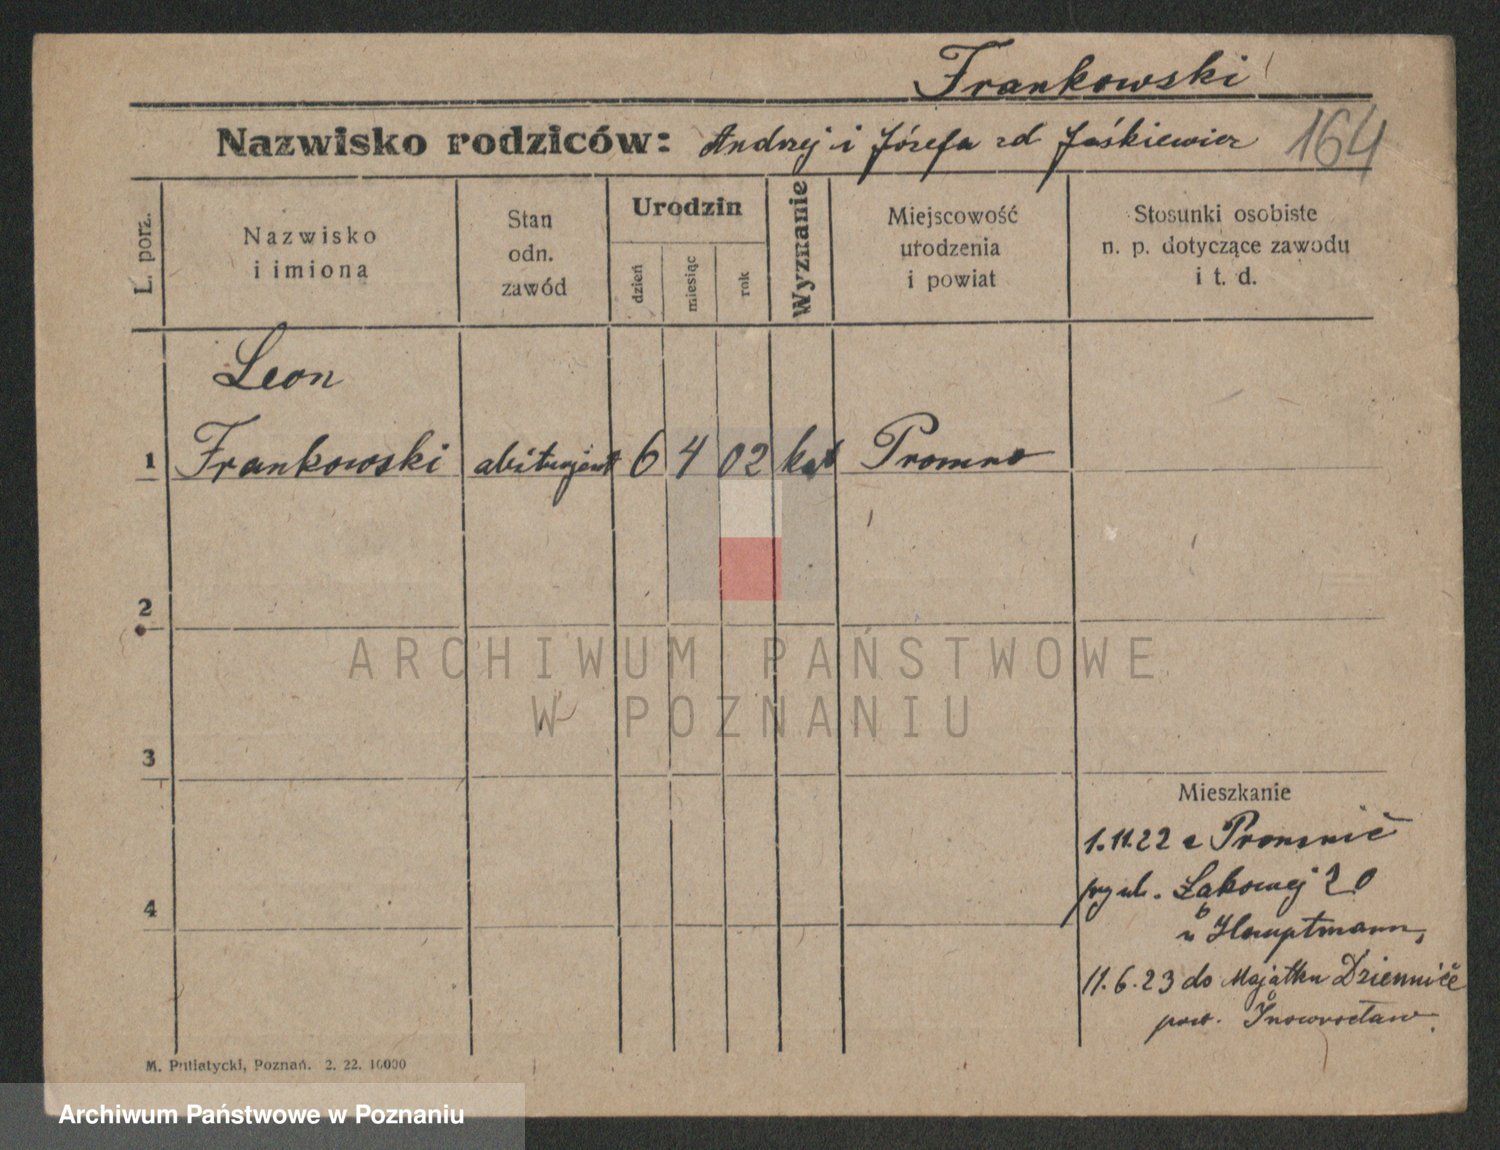 Frankowski
Nazwisko rodziców: Andrzej i Józefa zd Jaśkiewicz
164
L. porz.
Nazwisko
i imiona
Stan
odn.
zawód
Urodzin
dzień
miesiąc
rok
Wyznanie
Miejscowość
urodzenia
i powiat
Stosunki osobiste
n. p. dotyczące zawodu
i t. d.
Leon
1 Frankowski abiturjent 6 4 02 kat Promno
2
3
4
Mieszkanie
1.11.22 z
przy ul. Łąkowej 20
u Hauptmann,
11.6.23 do Majątku
pow. Inowrocław.
M. Putiatycki, Poznań. 2. 22. 10000
ARCHIWUM PAŃSTWOWE
W POZNANIU
Archiwum Państwowe w Poznaniu